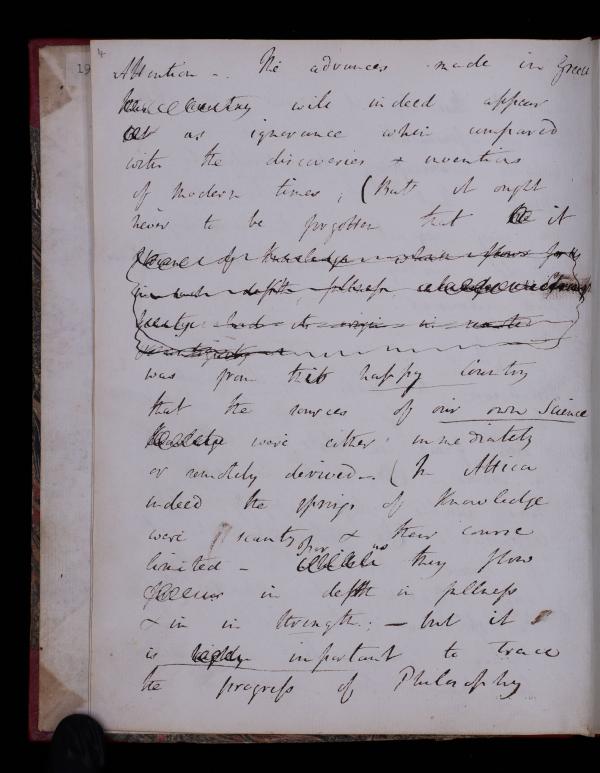 4
19
Attention - The advances made in Greece
will indeed appear
as ignorance when compared
with the discoveries & inventions
of modern times; (But it ought
never to be forgotten that it
of Knowledge which flows forth
in such depth, fullness,
had its origin in
was from this happy Country
that the sources of our own Science
were either immediately
or remotely derived - (In Attica
indeed the springs of Knowledge
were scanty & their course
limited - now they flow
in depth in fullness
& in strength; - but it
is highly important to trace
the progress of Philosophy